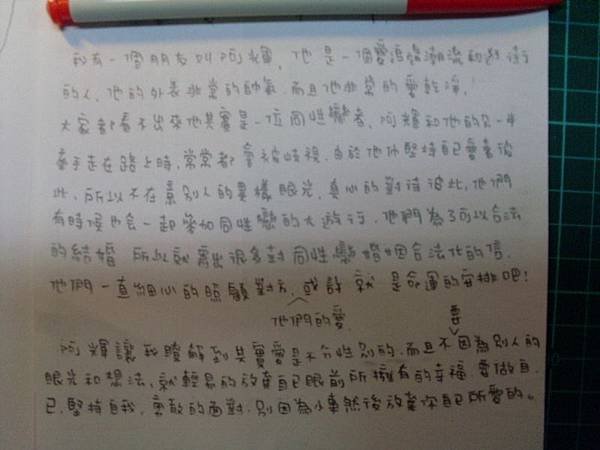 我有一個朋友叫阿輝，他是一個愛追隨潮流和逛街
的人，他的外表非常的帥氣，而且他非常的愛乾淨，
大家都看不出來他其實是一位同性戀者，阿輝和他的另一半
牽手走在路上時，常常都會被歧視，由於他們堅持自己愛著彼
此，所以不在意別人的異樣眼光，真心的對待彼此，他們
有時候也会一起參加同性戀的大遊行，他們為了可以合法
的結婚 所以就寫出很多對同性戀婚姻合法化的信，
他們一直細心的照顧對方，或許 就 是命運的安排吧！
他們的愛
要
阿輝讓我瞭解到其實愛是不分性別的，而且不因為別人的
眼光和想法，就輕易的放棄自己眼前所擁有的幸福，要做自
己，堅持自我，勇敢的面對，別因為小事然後放棄你自己所愛的。